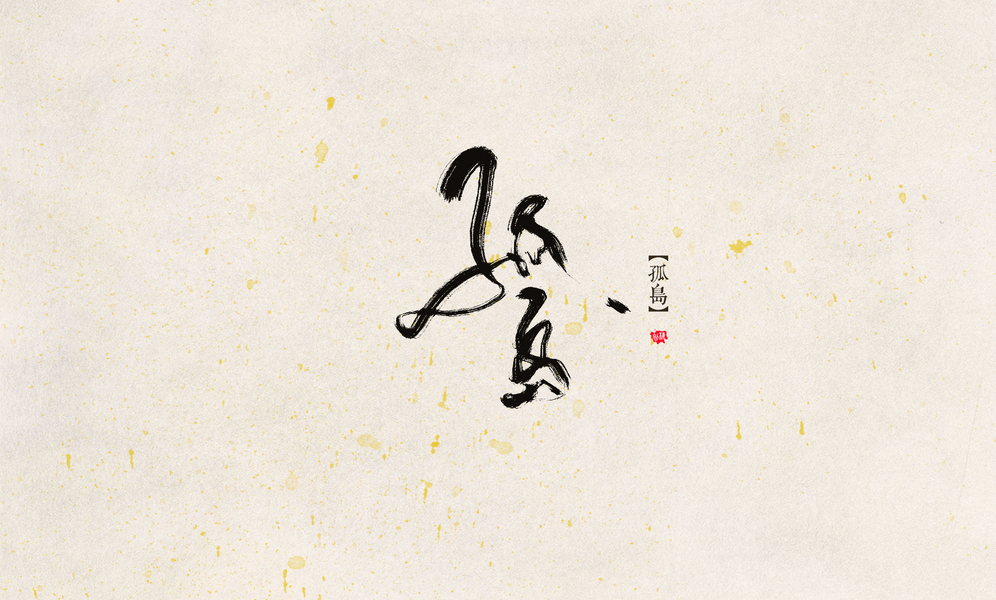 孤島
【孤島】